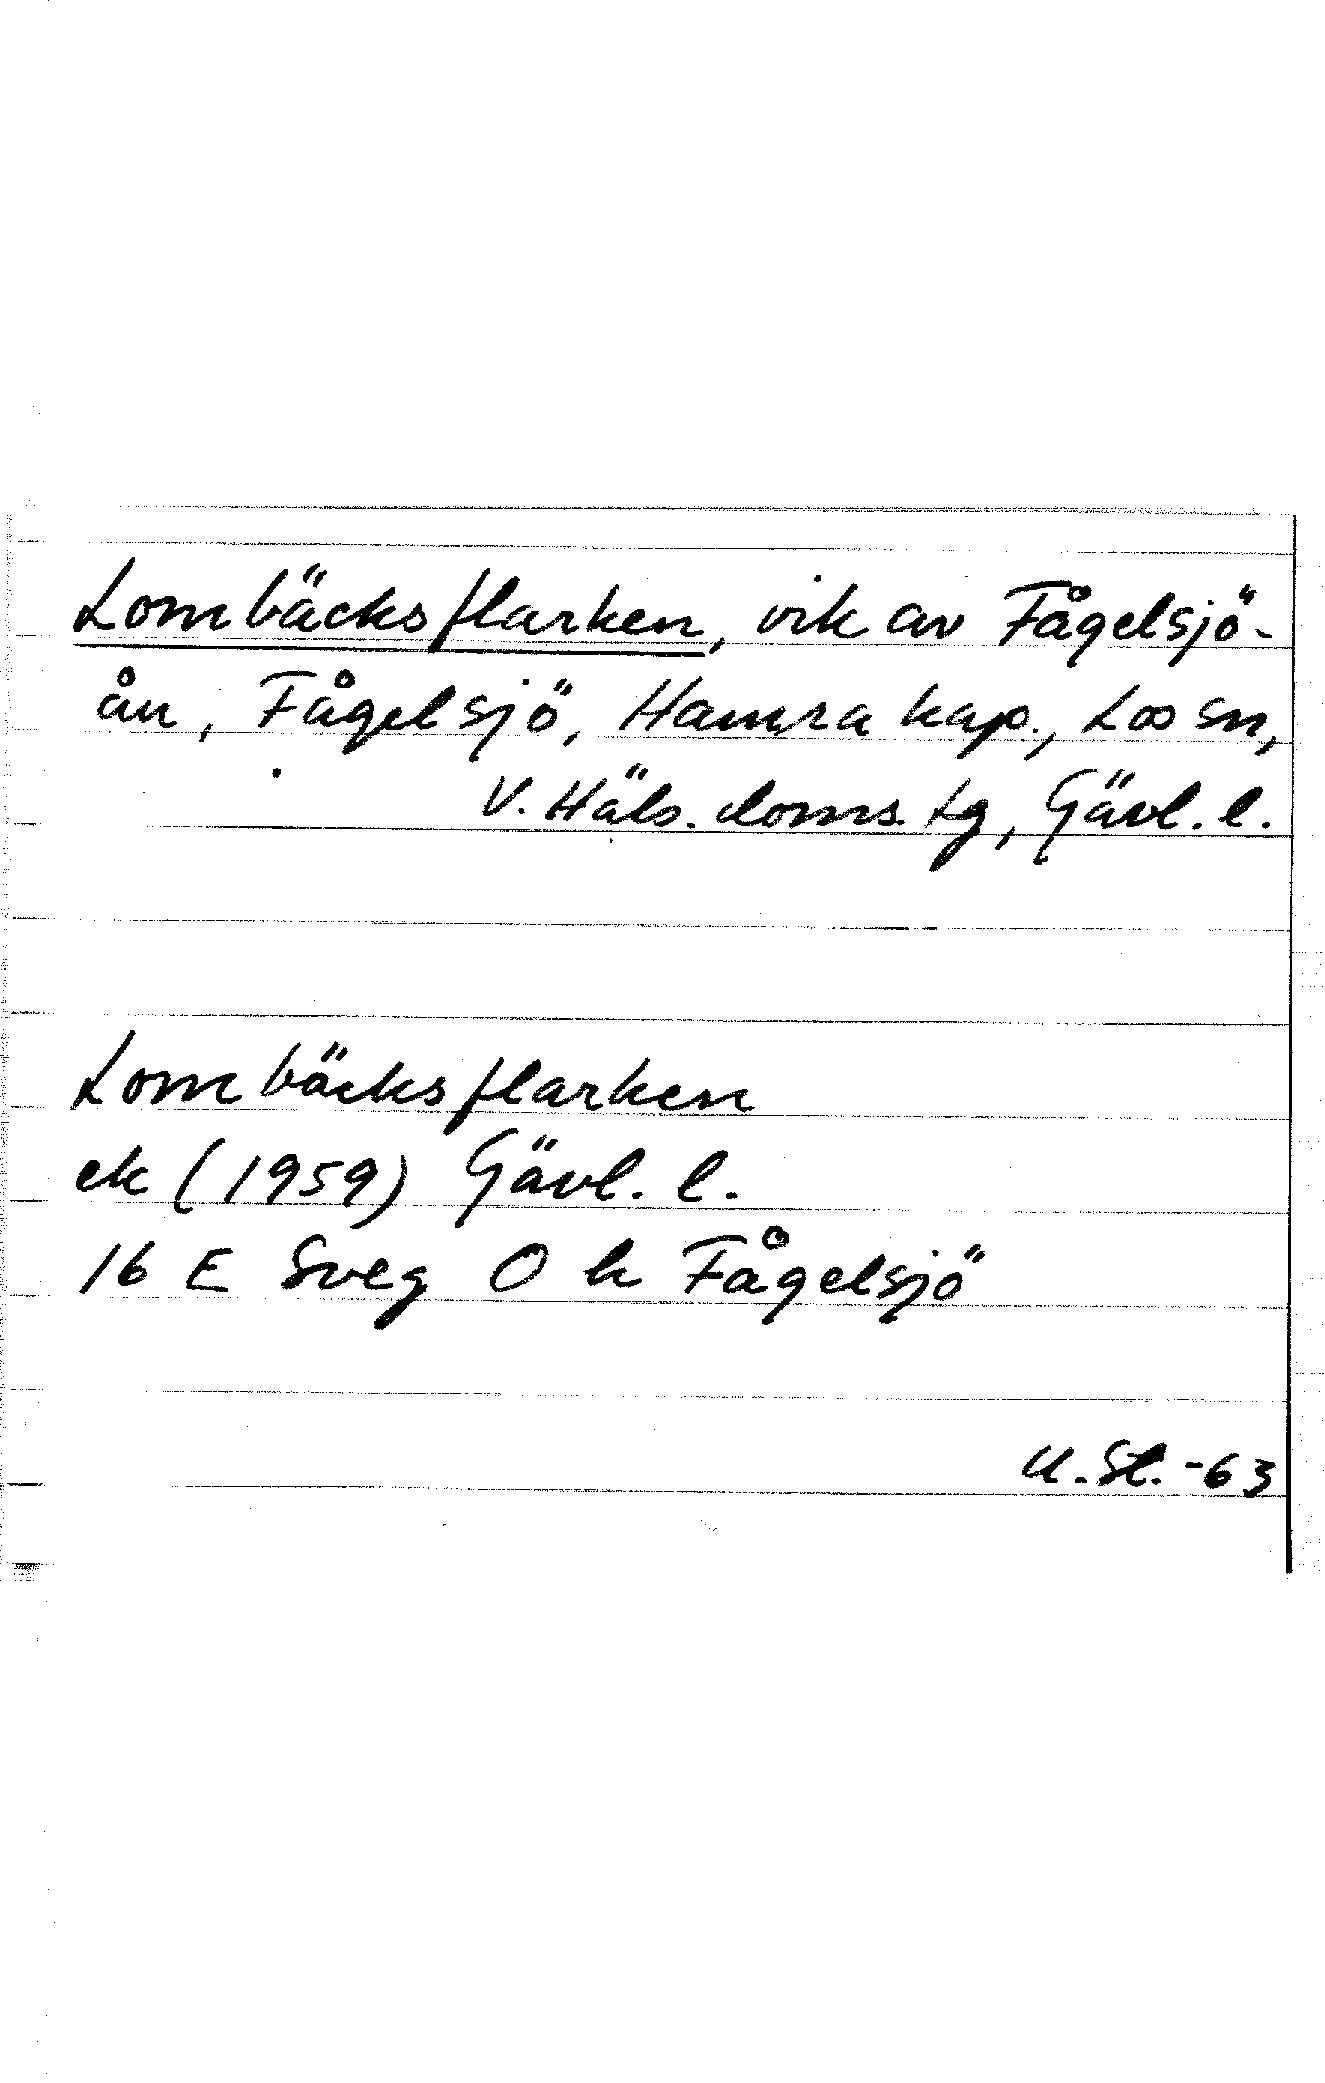 Lombäcksflarken, vik av Fågelsjö-
ån, Fågelsjö, Hamra kap., Loos sn,
V. Häls. doms. tg, Gävl. l.
Lombäcksflarken
ek (1959) Gävl. l.
16 E Sveg O k Fågelsjö
U. St. -63